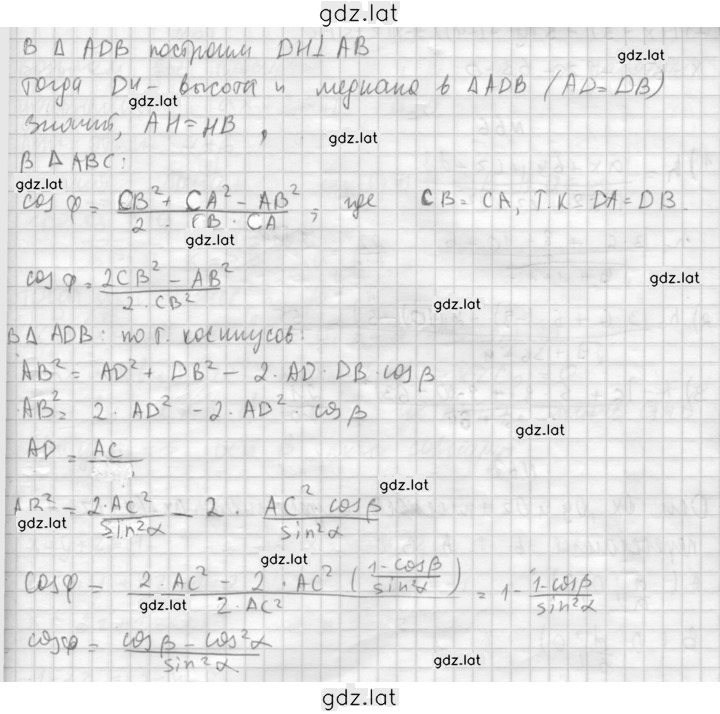 gdz.lat
В Δ ADB построим DH⊥AB
gdz.lat
тогда DH - высота и медиана в ΔADB (AD=DB)
gdz.lat
значит, AH=HB,
gdz.lat
В Δ ABC:
gdz.lat
cos φ = (CB² + CA² - AB²) / (2 · CB · CA), где CB = CA, т.к DA = DB.
gdz.lat
gdz.lat
cos φ = (2CB² - AB²) / (2·CB²)
gdz.lat
В Δ ADB: по т. косинусов:
AB² = AD² + DB² - 2·AD·DB·cos β
AB² = 2·AD² - 2·AD²·cos β
gdz.lat
AD = AC /
gdz.lat
AB² = 2·AC² / sin²α - 2 · AC² cos β / sin²α
gdz.lat
gdz.lat
cos φ = (2·AC² - 2·AC² ((1-cos β) / sin²α)) / (2·AC²) = 1 - (1-cos β) / sin²α
gdz.lat
cos φ = (cos β - cos²α) / sin²α
gdz.lat
gdz.lat